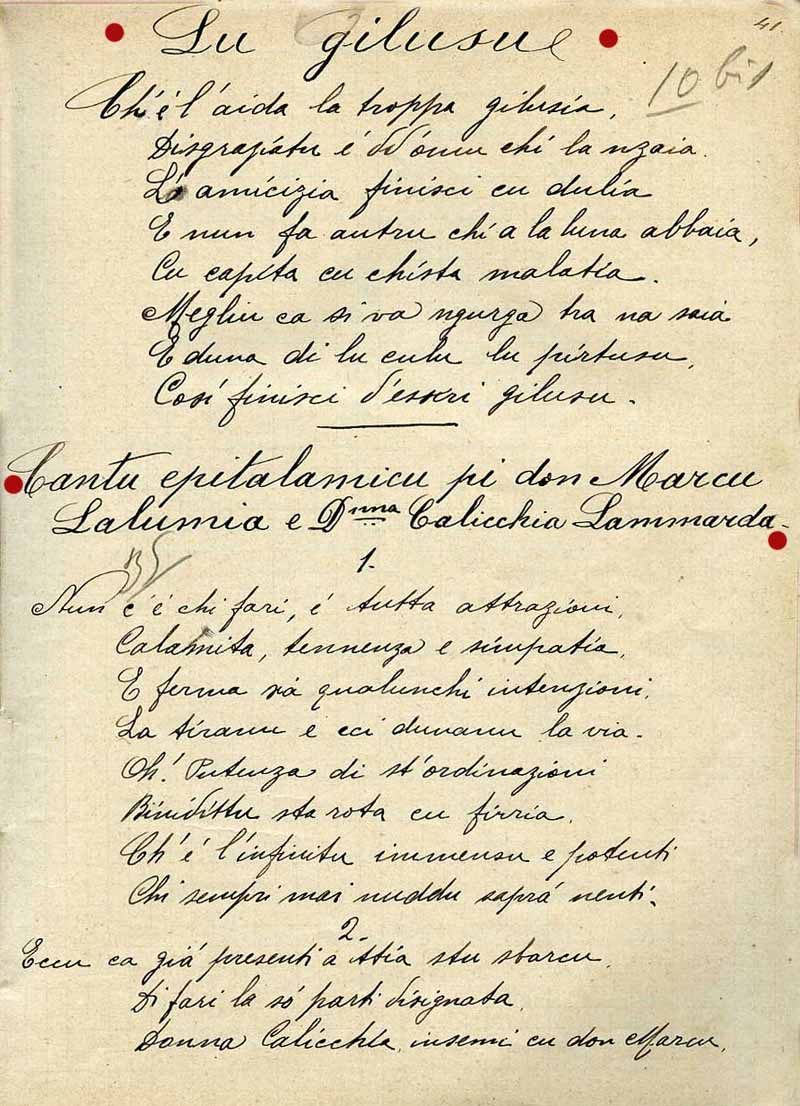 41.
Lu gilusu
10 bis
Ch'é l'áida la troppa gilusia,
Disgraziatu é dd'ómu chi la nzaia.
L'amicizia finisci cu dulía
E nun fa autru chi a la luna abbaia,
Cu capíta cu chísta malatía.
Megliu ca si va ngurga tra na saia
E duna di lu culu lu pírtusu,
Cosí finisci d'essiri gilusu.
Cantu epitalamicu pi don Marcu
Lalumia e Dnna Calicchia Lammarda
1.
Nun c'é chi fari, é tutta attrazioni,
Calamita, tennenza e simpatía,
E ferma sia qualunchi intenzioni,
La tiranu e cci dunanu la via.
Oh! Putenza di st'ordinazioni
Biniditta sta rota cu firria,
Ch'é l'infinitu immensu e potenti
Chi sempri mai nuddu saprá nenti.
2.
Eccu ca giá presenti a ttia stu sbarcu,
Di fari la só parti disignata,
Donna Calicchia, insemi cu don Marcu,